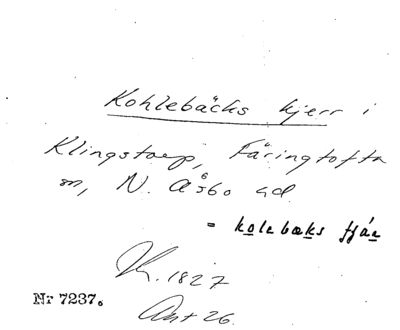 Kohlebäcks kjerr i
Klingstorp, Färingtofta
sn, N. Åsbo hd.
= kolebæks fjár
K. 1827
Akt 26.
Nr 7237.